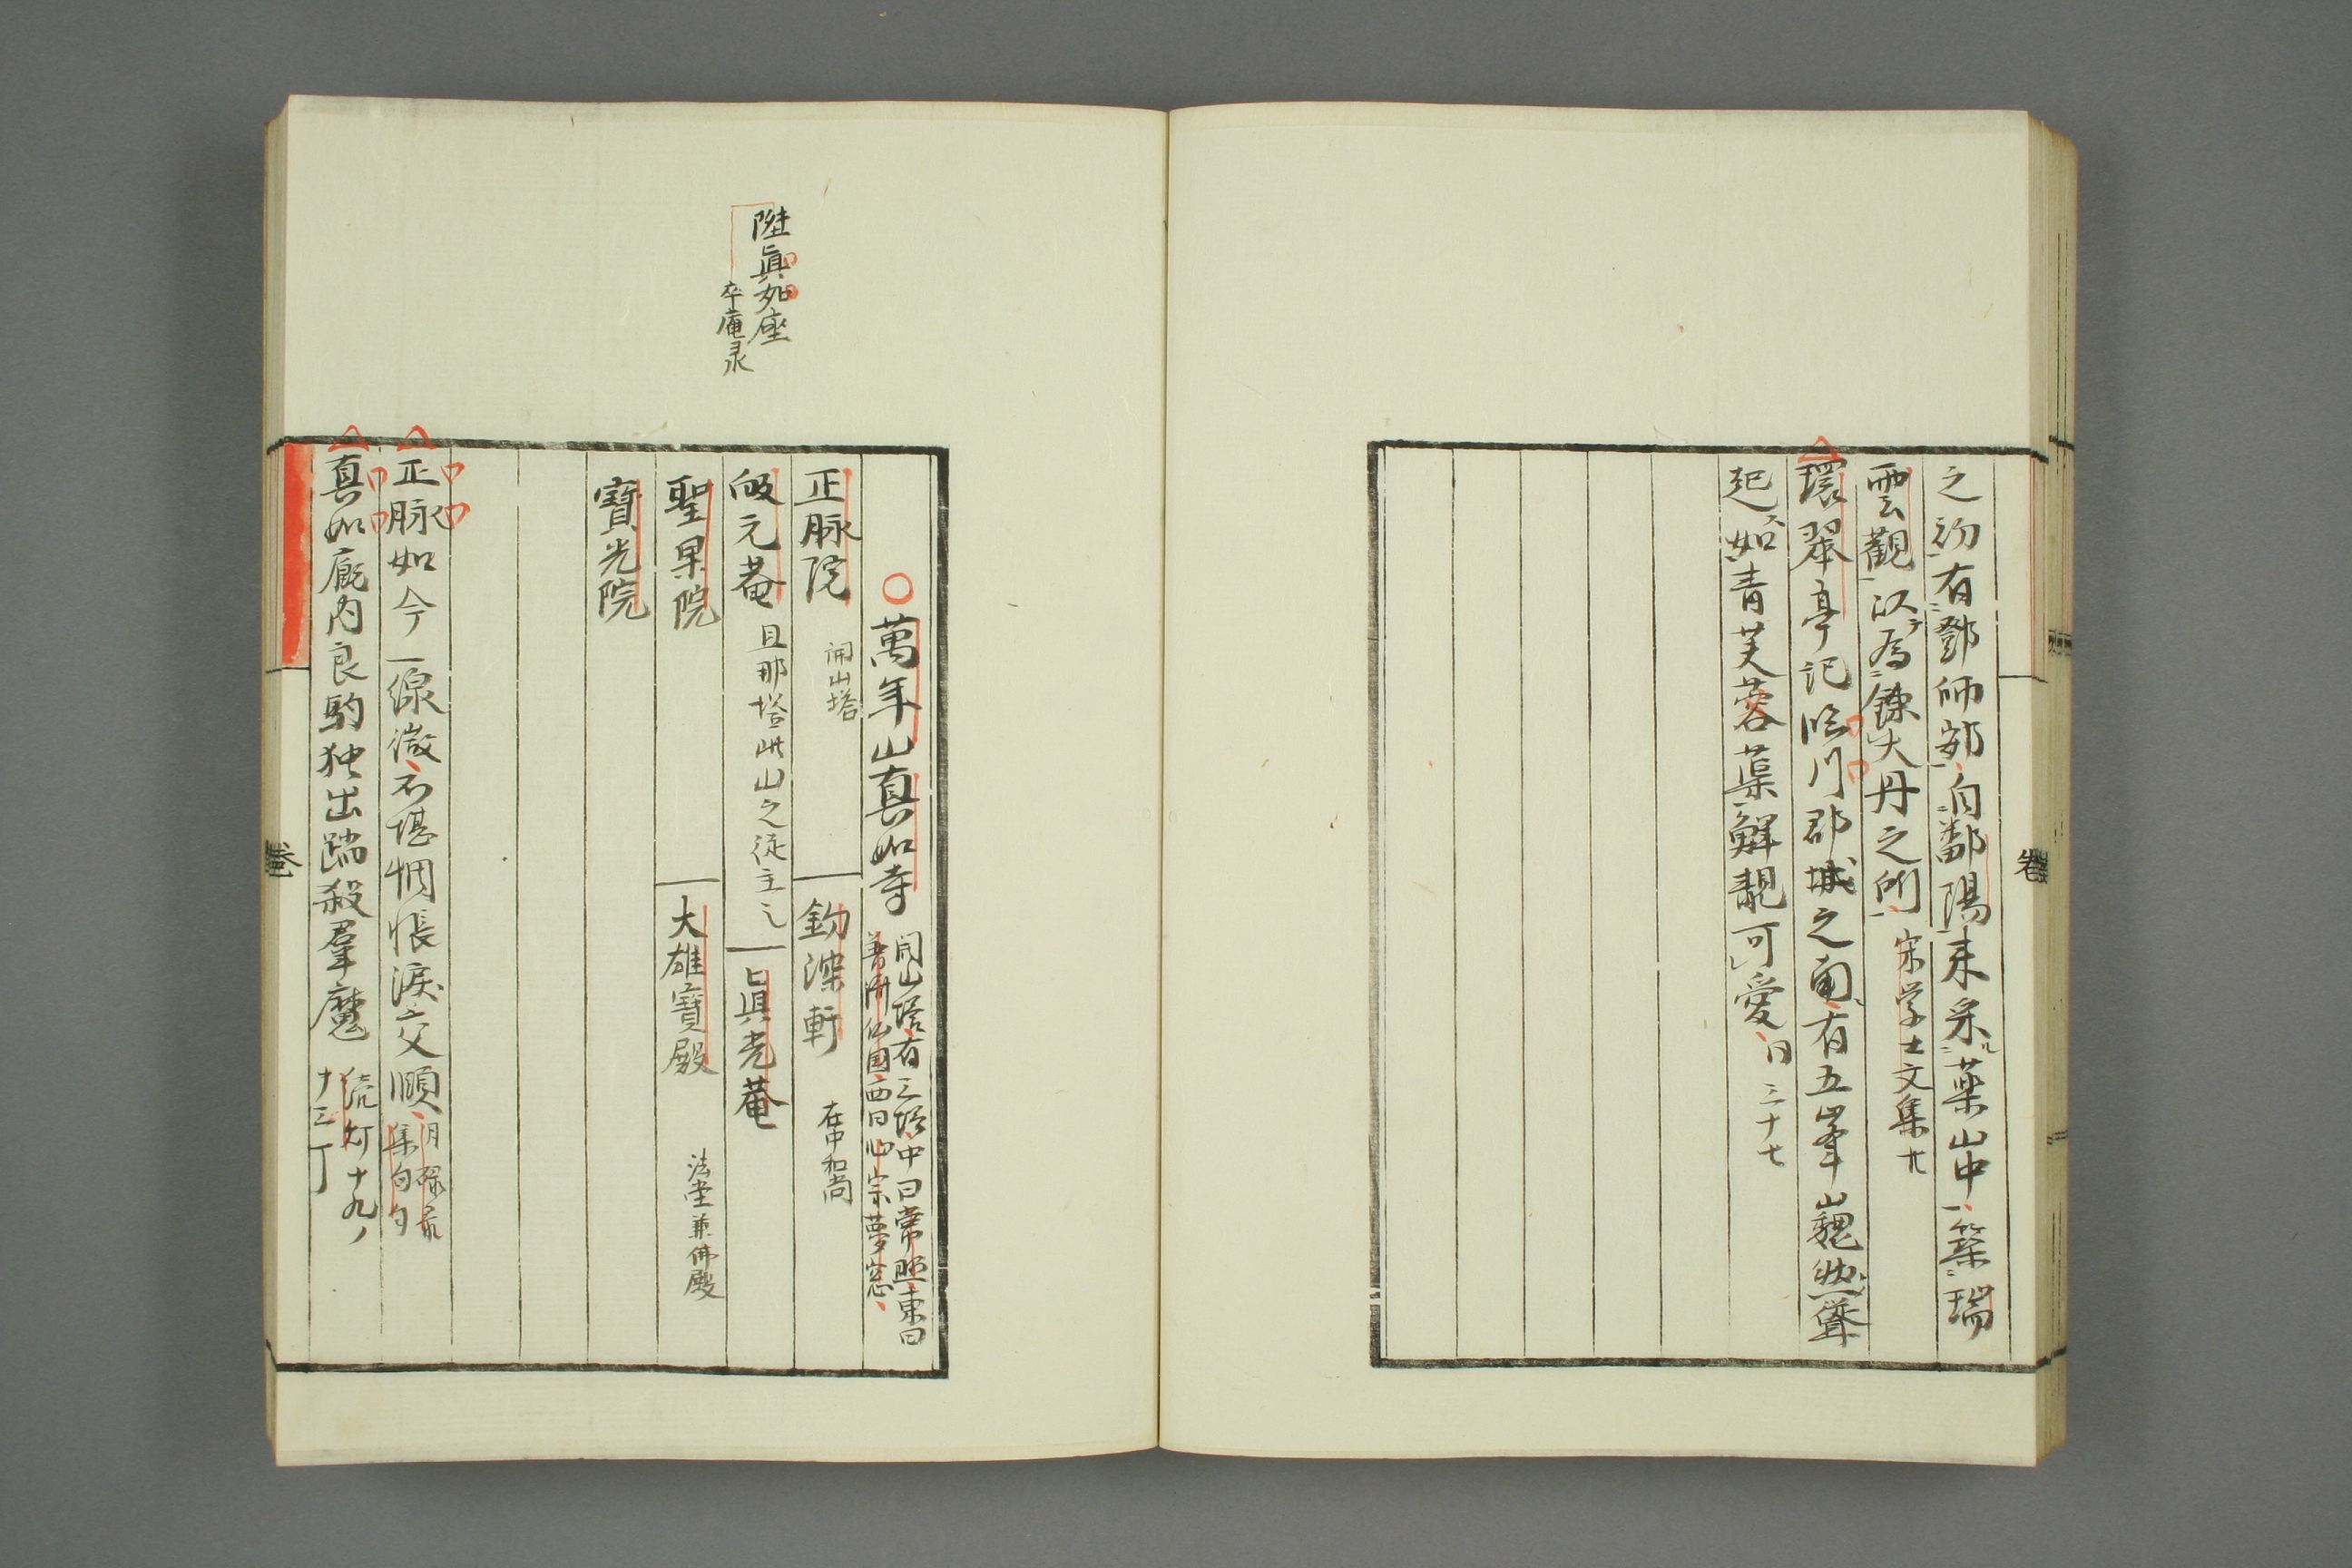 之初有鄧師郊自鄱陽来采薬山中築瑞
雲觀以爲錬大丹之所 宋学士文集廿
環翠亭記臨川郡城之南有五峯山巍然聳
起如青芙蓉蕖鮮靚可愛 同三十七
卷
陞真如座
卒庵录
萬年山真如寺 開山塔有三塔中曰常照東曰
普済仏国西曰心宗夢窓
正脉院 開山塔
鈎深軒 在中和尚
皈元菴 旦那塔此山之徒主之
真光菴
聖果院
大雄寶殿 法堂兼佛殿
寶光院
正脉如今一線微不堪惆悵淚交頤 月
集句
真如廐内良駒独出踏殺羣魔 続灯十九ノ
十三丁
卷